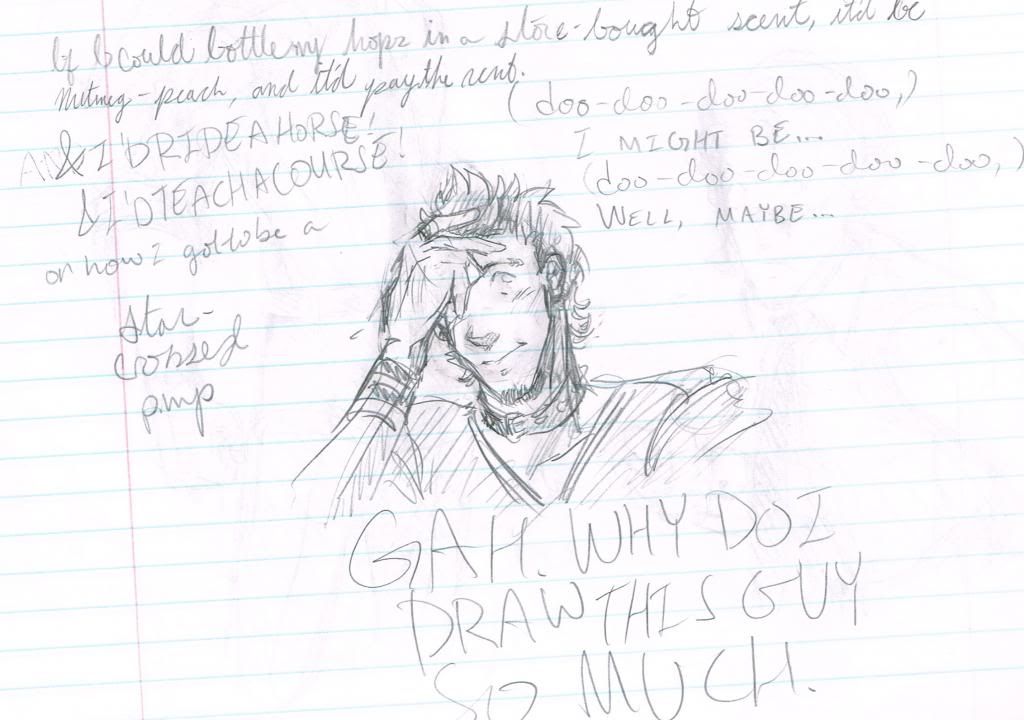 If I could bottle my hopz in a store-bought scent, it'd be
nutmeg-peach, and it'd pay the rent.
& I'D RIDE A HORSE!
& I'D TEACH A COURSE!
on how I got to be a
star-
crossed
pimp
(doo-doo-doo-doo-doo,)
I MIGHT BE...
(doo-doo-doo-doo-doo,)
WELL, MAYBE...
GAH. WHY DO I
DRAW THIS GUY
SO MUCH.